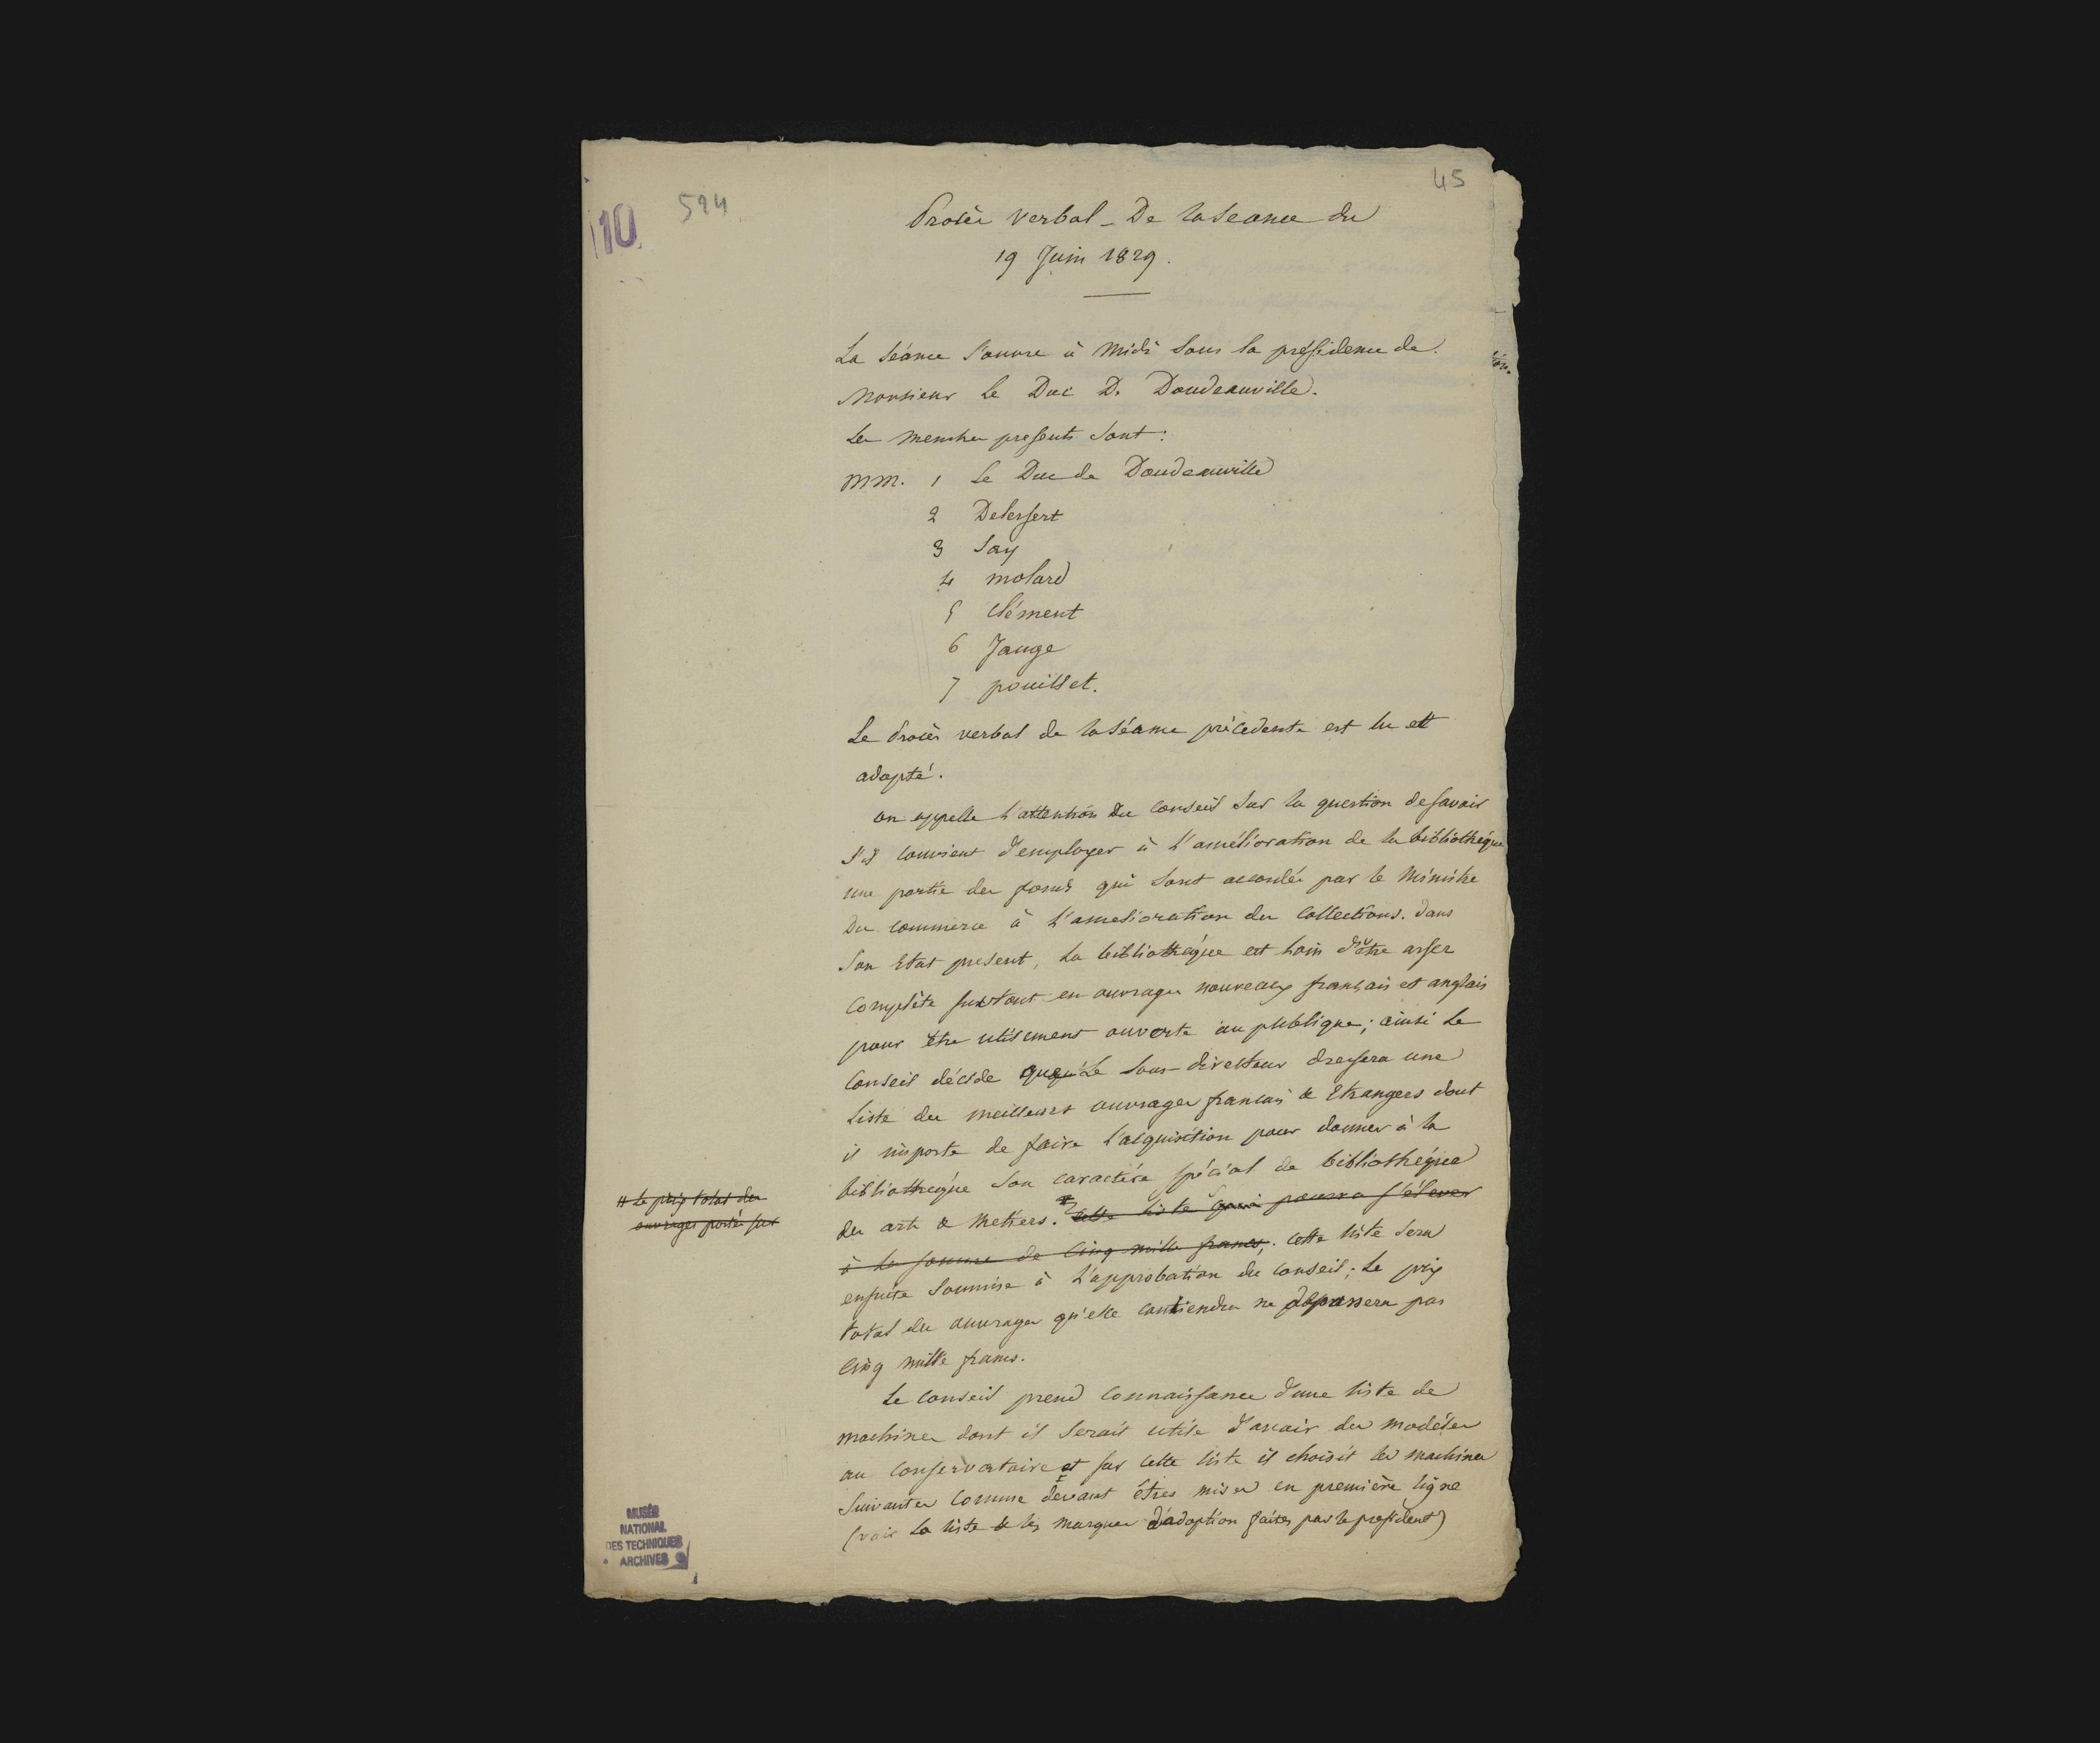 45
10
524
Procès verbal - De la Seance du
19 Juin 1829.
La Séance s'ouvre à Midi sous la présidence de
Monsieur le Duc D. Doudeauville.
Les membres presents sont :
MM. 1 Le Duc de Doudeauville
2 Delessert
3 Say
4 molard
5 Clément
6 Jauge
7 pouillet.
Le Procès verbal de la Séance précedente est lu et
adopté.
on appelle l'attention du conseil sur la question de savoir
s'il convient d'employer à l'amélioration de la bibliothéque
une partie des fonds qui sont accordés par le Ministre
Du commerce à l'amelioration des collections. dans
son Etat present, la bibliothéque est loin d'être assez
complète surtout en ouvrages nouveaux français et anglais
pour être utilement ouverte au publique ; ainsi le
Conseil décide que le sous-directeur dressera une
liste des meilleurs ouvrages francais & Etrangers dont
il importe de faire l'acquisition pour donner à la
bibliothéque son caractére spécial de bibliothéque
des arts & Metiers. # cette liste qui pourra s'élever
# Le prix total des
ouvrages portés sur
à la somme de Cinq mille francs, . cette liste sera
ensuite soumise à l'approbation du conseil ; le prix
total des ouvrages qu'elle contiendra ne depassera pas
Cinq mille francs.
Le conseil prend connaissance d'une liste de
machines dont il serait utile d'avoir des modéles
au conservatoire et sur cette liste il choisit les machines
suivantes comme devant êtres mises en première ligne
(voir la liste & les marques d'adoption faites par le president)
MUSÉE
NATIONAL
DES TECHNIQUES
ARCHIVES